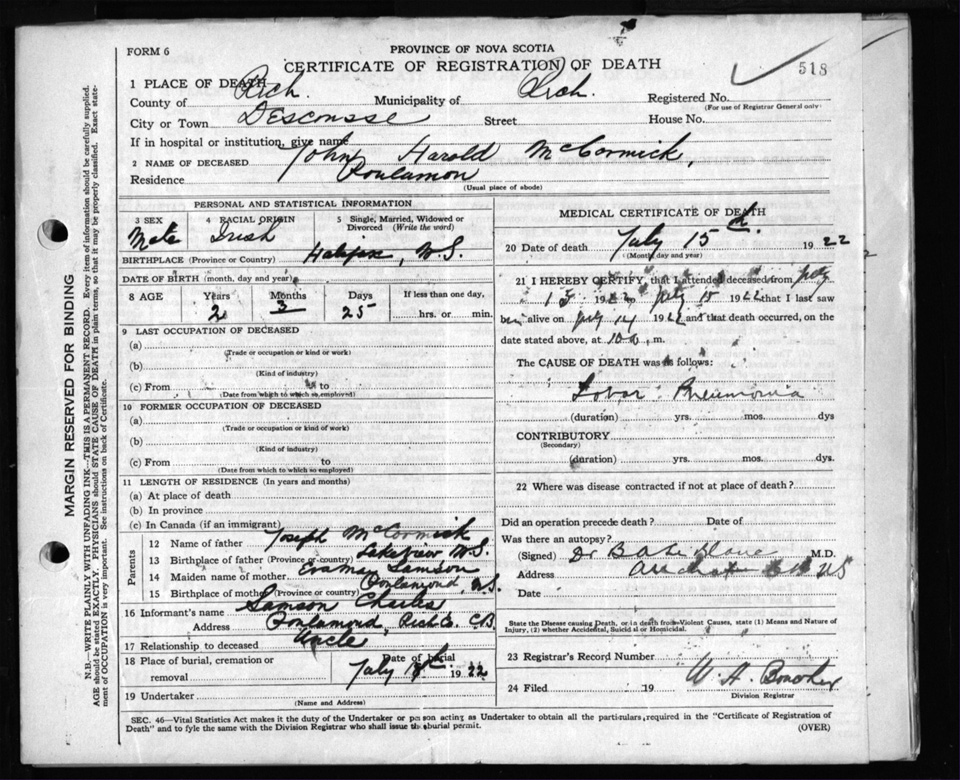 FORM 6
PROVINCE OF NOVA SCOTIA
CERTIFICATE OF REGISTRATION OF DEATH
518
1 PLACE OF DEATH
County of Rich. Municipality of Rich. Registered No.
(For use of Registrar General only)
City or Town Descousse Street House No.
If in hospital or institution, give name
2 NAME OF DECEASED John Harold McCormick,
Residence Poulamon
(Usual place of abode)
PERSONAL AND STATISTICAL INFORMATION
3 SEX 4 RACIAL ORIGIN 5 Single, Married, Widowed or Divorced (Write the word)
Male Irish
BIRTHPLACE (Province or Country) Halifax, N.S.
DATE OF BIRTH (month, day and year)
8 AGE Years Months Days If less than one day,
2 3 25 hrs. or min.
9 LAST OCCUPATION OF DECEASED
(a)
(Trade or occupation or kind or work)
(b)
(Kind of industry)
(c) From to
(Date from which to which so employed)
10 FORMER OCCUPATION OF DECEASED
(a)
(Trade or occupation or kind of work)
(b)
(Kind of industry)
(c) From to
(Date from which to which so employed)
11 LENGTH OF RESIDENCE (In years and months)
(a) At place of death
(b) In province
(c) In Canada (if an immigrant)
Parents
12 Name of father Joseph McCormick
13 Birthplace of father (Province or country) Lakeview N.S.
14 Maiden name of mother Samson
15 Birthplace of mother (Province or country) Poulamond, N.S.
16 Informant's name Samson Charles
Address Poulamond, Rich Co. C.B.
17 Relationship to deceased Uncle
18 Place of burial, cremation or removal
Date of burial
July 1922
19 Undertaker
(Name and Address)
MEDICAL CERTIFICATE OF DEATH
20 Date of death July 15 1922
(Month, day and year)
21 I HEREBY CERTIFY, that I attended deceased from July
1922 to July 15 1922 that I last saw
him alive on July 14 1922 and that death occurred, on the
date stated above, at 10 m.
The CAUSE OF DEATH was as follows:
Lobar Pneumonia
(duration) yrs. mos. dys
CONTRIBUTORY
(Secondary)
(duration) yrs. mos. dys.
22 Where was disease contracted if not at place of death?
Did an operation precede death? Date of
Was there an autopsy?
(Signed) Dr M.D.
Address
Date
State the Disease causing Death, or in death from Violent Causes, state (1) Means and Nature of
Injury, (2) whether Accidental, Suicidal or Homicidal.
23 Registrar's Record Number
24 Filed 19 W. A.
Division Registrar
SEC. 46—Vital Statistics Act makes it the duty of the Undertaker or person acting as Undertaker to obtain all the particulars required in the "Certificate of Registration of
Death" and to fyle the same with the Division Registrar who shall issue the burial permit.
(OVER)
MARGIN RESERVED FOR BINDING
N.B.—WRITE PLAINLY WITH UNFADING INK—THIS IS A PERMANENT RECORD. Every item of information should be carefully supplied.
AGE should be stated EXACTLY. PHYSICIANS should STATE CAUSE OF DEATH in plain terms, so that it may be properly classified. Exact state-
ment of OCCUPATION is very important. See instructions on back of Certificate.